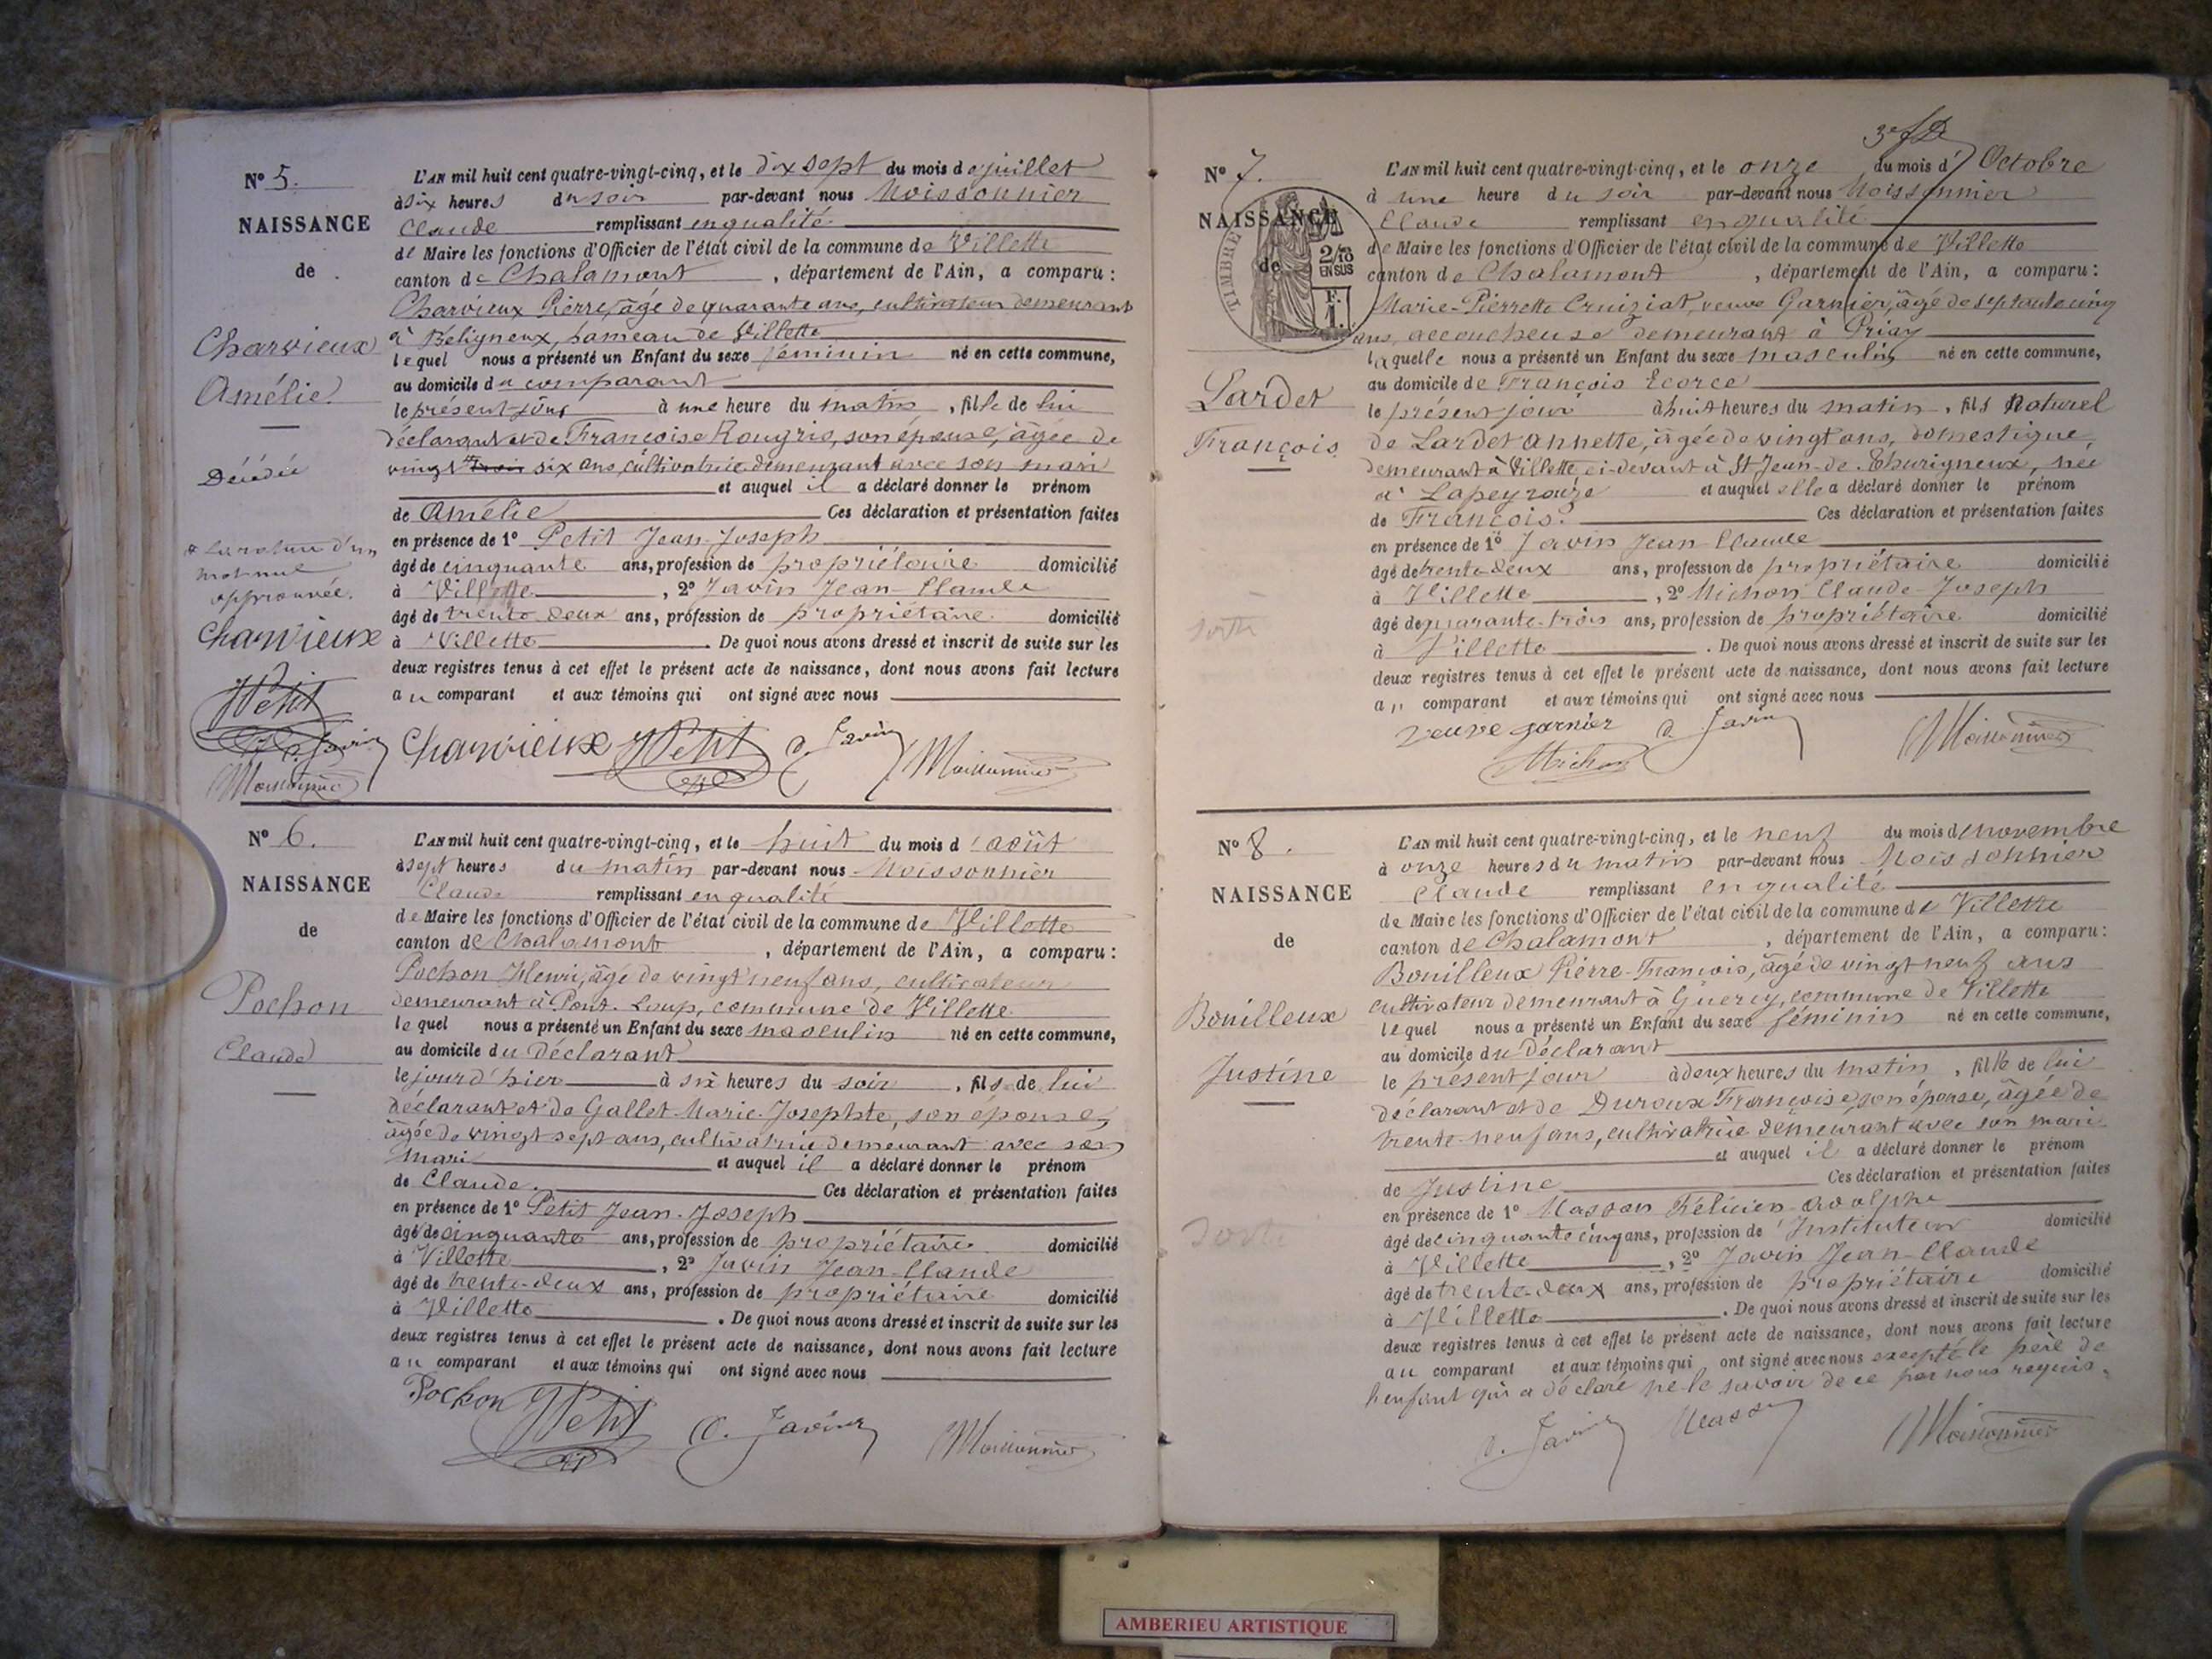 N° 5.
NAISSANCE
de
Charvieux
Amélie
Décédée
La rature d'un
mot nul
approuvée.
Charvieux
JPetit
C. Javin
Moissonnier
L'AN mil huit cent quatre-vingt-cinq, et le dix sept du mois de juillet
à six heures du soir par-devant nous Moissonnier
Claude remplissant en qualité
de Maire les fonctions d'Officier de l'état civil de la commune de Villette
canton de Chalamont, département de l'Ain, a comparu :
Charvieux Pierre, âgé de quarante ans, cultivateur demeurant
à Béligneux, hameau de Villette
lequel nous a présenté un Enfant du sexe féminin né en cette commune,
au domicile du comparant
le présent jour à une heure du matin, fille de lui
déclarant et de Françoise Rougris, son épouse, âgée de
vingt trois six ans, cultivatrice demeurant avec son mari
et auquel il a déclaré donner le prénom
de Amélie Ces déclaration et présentation faites
en présence de 1° Petit Jean-Joseph
âgé de cinquante ans, profession de propriétaire domicilié
à Villette, 2° Javin Jean-Claude
âgé de trente-deux ans, profession de propriétaire domicilié
à Villette. De quoi nous avons dressé et inscrit de suite sur les
deux registres tenus à cet effet le présent acte de naissance, dont nous avons fait lecture
au comparant et aux témoins qui ont signé avec nous
Charvieux JPetit C. Javin Moissonnier
N° 6.
NAISSANCE
de
Pochon
Claude
L'AN mil huit cent quatre-vingt-cinq, et le huit du mois d'août
à sept heures du matin par-devant nous Moissonnier
Claude remplissant en qualité
de Maire les fonctions d'Officier de l'état civil de la commune de Villette
canton de Chalamont, département de l'Ain, a comparu :
Pochon Henri, âgé de vingt neuf ans, cultivateur
demeurant à Pont-Loup, commune de Villette
lequel nous a présenté un Enfant du sexe masculin né en cette commune,
au domicile du Déclarant
le jour d'hier à six heures du soir, fils de lui
déclarant et de Gallet Marie-Josephte, son épouse,
âgée de vingt sept ans, cultivatrice demeurant avec son
mari et auquel il a déclaré donner le prénom
de Claude. Ces déclaration et présentation faites
en présence de 1° Petit Jean-Joseph
âgé de cinquante ans, profession de propriétaire domicilié
à Villette, 2° Javin Jean-Claude
âgé de trente-deux ans, profession de propriétaire domicilié
à Villette. De quoi nous avons dressé et inscrit de suite sur les
deux registres tenus à cet effet le présent acte de naissance, dont nous avons fait lecture
au comparant et aux témoins qui ont signé avec nous
Pochon JPetit C. Javin Moissonnier
3e
N° 7.
NAISSANCE
de
TIMBRE
2/10
EN SUS
F.
1.
Lardet
François
L'AN mil huit cent quatre-vingt-cinq, et le onze du mois d'Octobre
à une heure du soir par-devant nous Moissonnier
Claude remplissant en qualité
de Maire les fonctions d'Officier de l'état civil de la commune de Villette
canton de Chalamont, département de l'Ain, a comparu :
Marie-Pierrette Cruiziat, veuve Garnier, âgé de septante cinq
ans, accoucheuse demeurant à Priay
laquelle nous a présenté un Enfant du sexe masculin né en cette commune,
au domicile de François Ecorce
le présent jour à huit heures du matin, fils Naturel
de Lardet Annette, âgée de vingt ans, domestique,
demeurant à Villette, ci-devant à St Jean-de-Thurigneux, née
à Lapeyrouze et auquel elle a déclaré donner le prénom
de François. Ces déclaration et présentation faites
en présence de 1° Javin Jean Claude
âgé de trente deux ans, profession de propriétaire domicilié
à Villette, 2° Michon Claude-Joseph
âgé de quarante-trois ans, profession de propriétaire domicilié
à Villette. De quoi nous avons dressé et inscrit de suite sur les
deux registres tenus à cet effet le présent acte de naissance, dont nous avons fait lecture
au comparant et aux témoins qui ont signé avec nous
veuve garnier C. Javin Moissonnier
Michon
N° 8.
NAISSANCE
de
Bouilleux
Justine
L'AN mil huit cent quatre-vingt-cinq, et le neuf du mois de novembre
à onze heures du matin par-devant nous Moissonnier
Claude remplissant en qualité
de Maire les fonctions d'Officier de l'état civil de la commune de Villette
canton de Chalamont, département de l'Ain, a comparu :
Bouilleux Pierre-François, âgé de vingt neuf ans
cultivateur demeurant à Guercy, commune de Villette
lequel nous a présenté un Enfant du sexe féminin né en cette commune,
au domicile du Déclarant
le présent jour à deux heures du matin, fille de lui
déclarant et de Duroux Françoise, son épouse, âgée de
trente-neuf ans, cultivatrice demeurant avec son mari
et auquel il a déclaré donner le prénom
de Justine Ces déclaration et présentation faites
en présence de 1° Masson Félicien-Adolphe
âgé de cinquante cinq ans, profession de Instituteur domicilié
à Villette, 2° Javin Jean-Claude
âgé de trente-deux ans, profession de propriétaire domicilié
à Villette. De quoi nous avons dressé et inscrit de suite sur les
deux registres tenus à cet effet le présent acte de naissance, dont nous avons fait lecture
au comparant et aux témoins qui ont signé avec nous excepté le père de
l'enfant qui a déclaré ne le savoir de ce par nous requis.
C. Javin Masson Moissonnier
AMBERIEU ARTISTIQUE